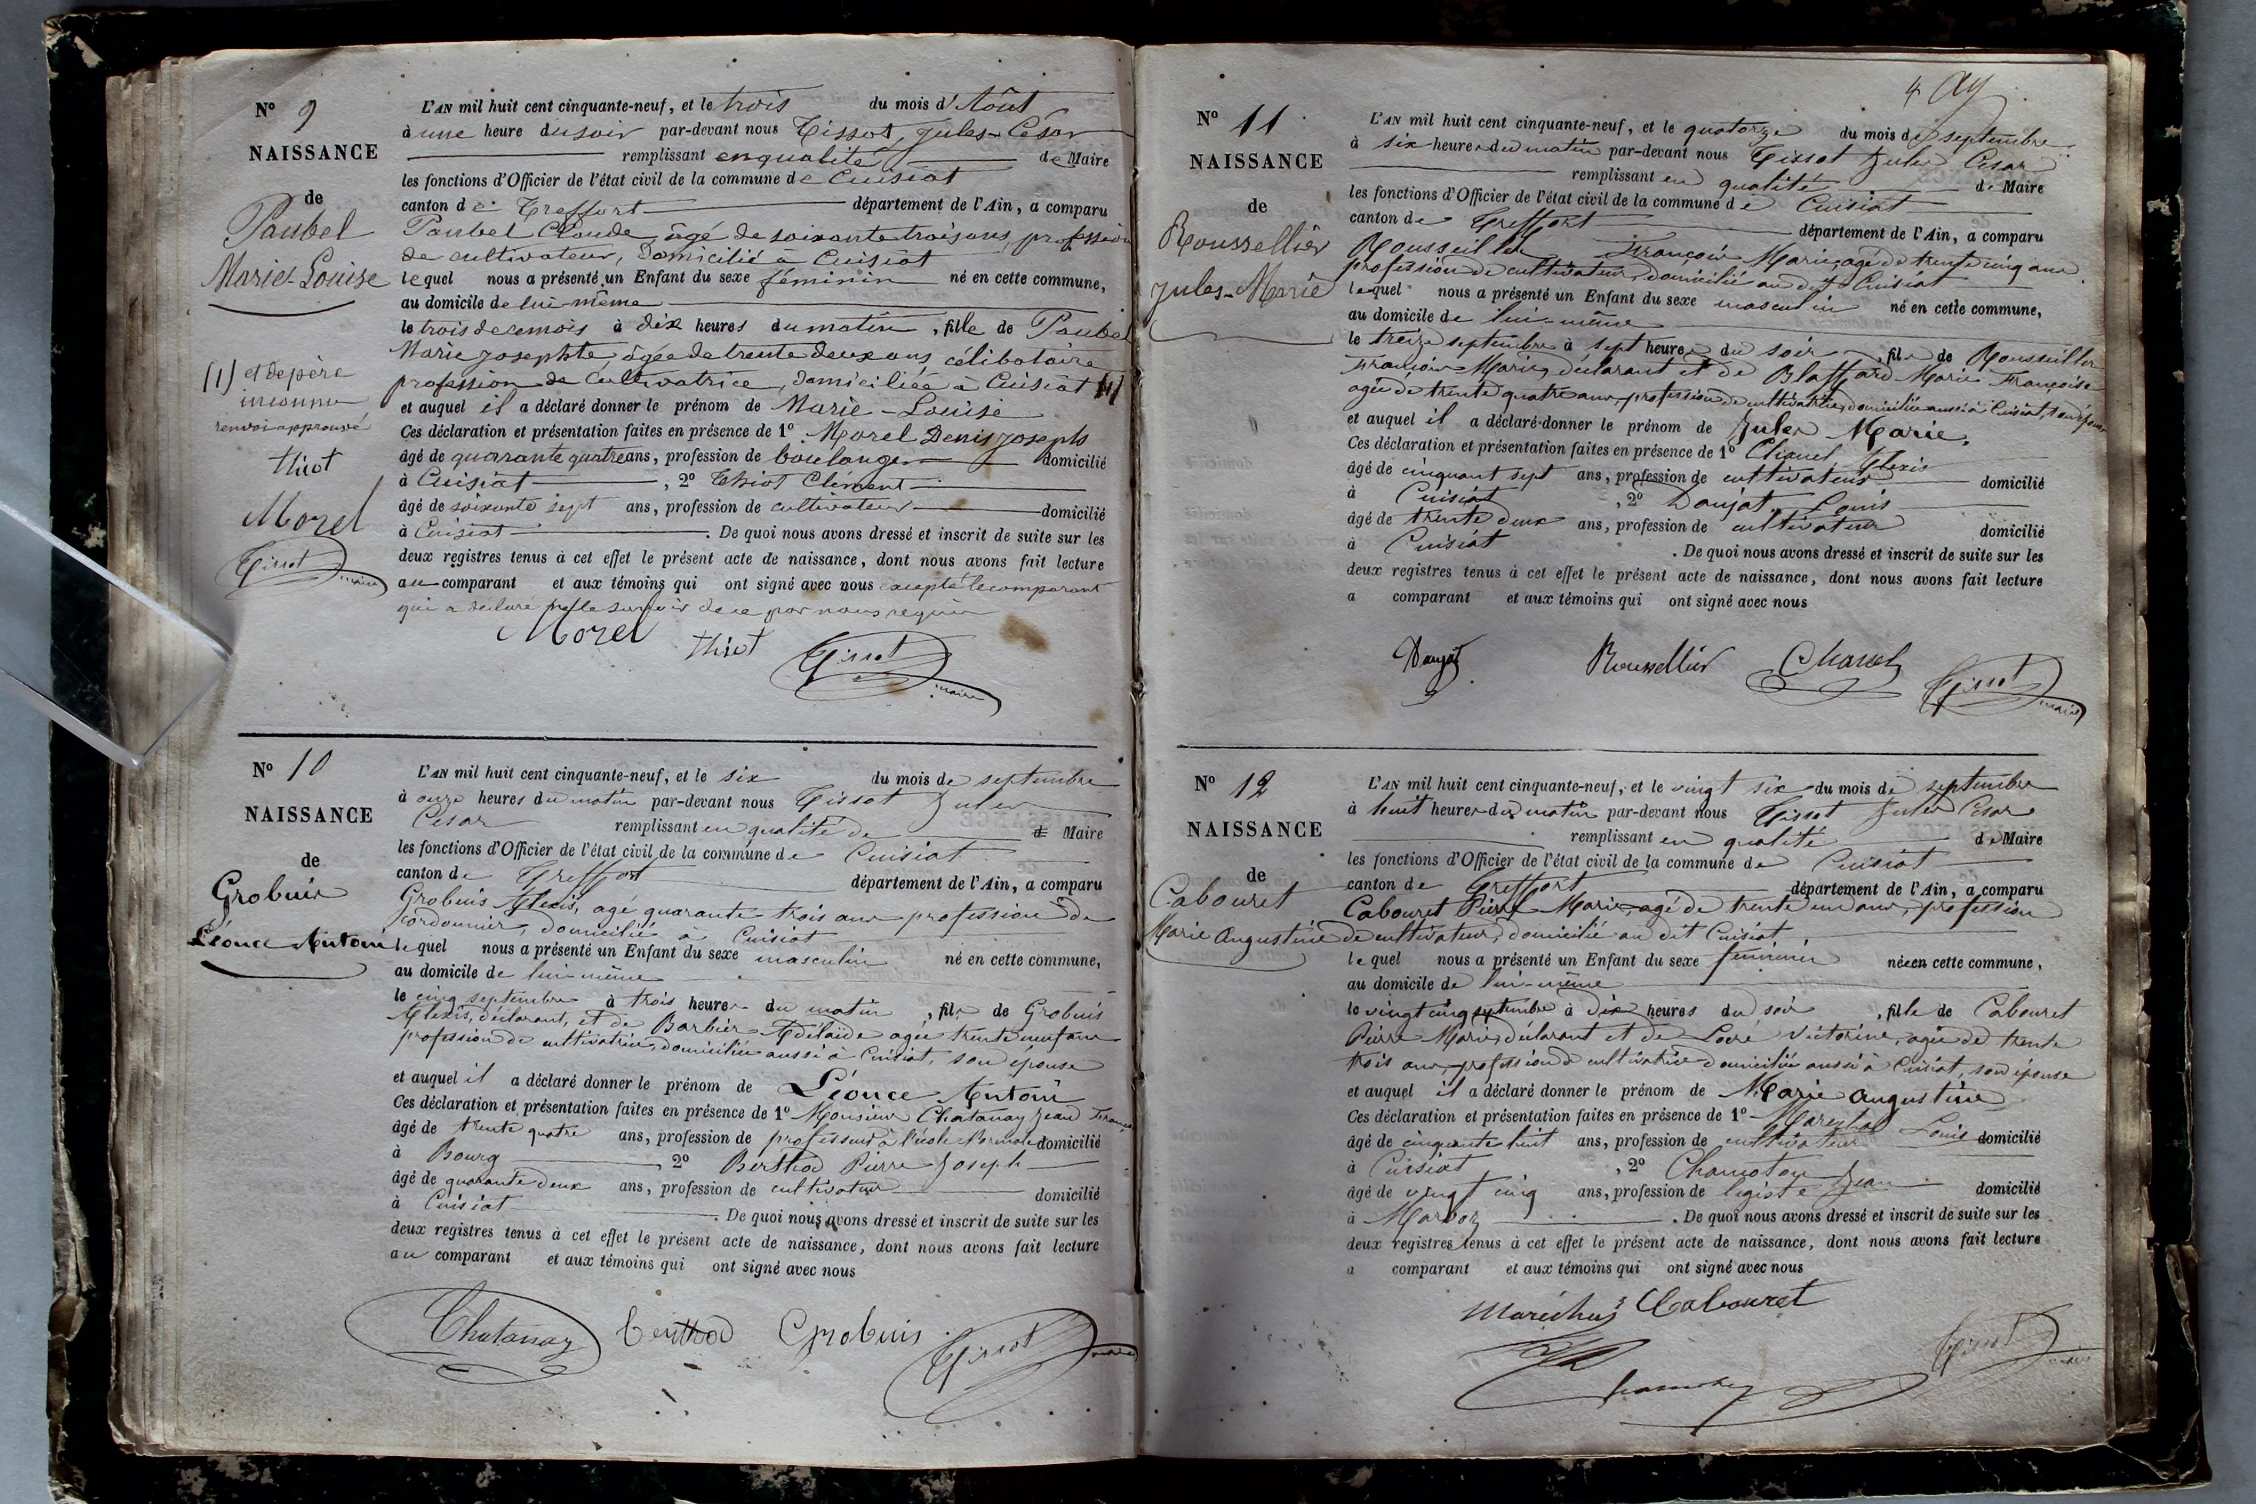 Nº 9
NAISSANCE
de
Paubel
Marie-Louise
(1) et de père
inconnu
renvoi approuvé
thiot
Morel
Tissot maire
L'AN mil huit cent cinquante-neuf, et le trois du mois d'Août
à une heure du soir par-devant nous Tissot, Jules-César
remplissant en qualité de Maire
les fonctions d'Officier de l'état civil de la commune de Cuisiat
canton de Treffort département de l'Ain, a comparu
Paubel Claude, âgé de soixante trois ans, profession
de cultivateur, Domicilié à Cuisiat
lequel nous a présenté un Enfant du sexe féminin né en cette commune,
au domicile de lui-même
le trois de ce mois à dix heures du matin, fille de Paubel
Marie Josephte âgée de trente deux ans, célibataire
profession de Cultivatrice, domiciliée à Cuisiat (1)
et auquel il a déclaré donner le prénom de Marie-Louise
Ces déclaration et présentation faites en présence de 1º Morel Denis Joseph
âgé de quarante quatre ans, profession de boulanger domicilié
à Cuisiat, 2º Thiot Clément
âgé de soixante sept ans, profession de cultivateur domicilié
à Cuisiat. De quoi nous avons dressé et inscrit de suite sur les
deux registres tenus à cet effet le présent acte de naissance, dont nous avons fait lecture
au comparant et aux témoins qui ont signé avec nous excepté le comparant
qui a déclaré ne le savoir de ce par nous requis
Morel thiot Tissot maire
Nº 10
NAISSANCE
de
Grobuis
Léonce Antoni
L'AN mil huit cent cinquante-neuf, et le six du mois de septembre
à onze heures du matin par-devant nous Tissot Jules
César remplissant en qualité de de Maire
les fonctions d'Officier de l'état civil de la commune de Cuisiat
canton de Treffort département de l'Ain, a comparu
Grobuis Alexis, agé quarante trois ans profession de
cordonnier, domicilié à Cuisiat
lequel nous a présenté un Enfant du sexe masculin né en cette commune,
au domicile de lui-même
le cinq septembre à trois heures du matin, fils de Grobuis
Alexis, déclarant, et de Barbier Adélaïde agée trente neuf ans
profession de cultivatrice, domiciliée aussi à Cuisiat, son épouse
et auquel il a déclaré donner le prénom de Léonce Antoni
Ces déclaration et présentation faites en présence de 1º Monsieur Chatanay Jean François
âgé de trente quatre ans, profession de professeur à l'école Normale domicilié
à Bourg, 2º Berthod Pierre Joseph
âgé de quarante deux ans, profession de cultivateur domicilié
à Cuisiat. De quoi nous avons dressé et inscrit de suite sur les
deux registres tenus à cet effet le présent acte de naissance, dont nous avons fait lecture
au comparant et aux témoins qui ont signé avec nous
Chatanay Berthod Grobuis Tissot maire
4
Nº 11
NAISSANCE
de
Roussellier
Jules-Marie
L'AN mil huit cent cinquante-neuf, et le quatorze du mois de septembre
à six heures du matin par-devant nous Tissot Jules César
remplissant en qualité de Maire
les fonctions d'Officier de l'état civil de la commune de Cuisiat
canton de Treffort département de l'Ain, a comparu
Rousseiller François Marie, agé de trente cinq ans
profession de cultivateur, domicilié au dit Cuisiat
lequel nous a présenté un Enfant du sexe masculin né en cette commune,
au domicile de lui-même
le treize septembre à sept heures du soir, fils de Rousseiller
François Marie, déclarant et de Blaffard Marie Françoise
agée de trente quatre ans, profession de cultivatrice, domiciliée aussi à Cuisiat, son épouse
et auquel il a déclaré donner le prénom de Jules Marie.
Ces déclaration et présentation faites en présence de 1º Chanel Alexis
âgé de cinquant sept ans, profession de cultivateur domicilié
à Cuisiat, 2º Daujat Louis
âgé de trente deux ans, profession de cultivateur domicilié
à Cuisiat. De quoi nous avons dressé et inscrit de suite sur les
deux registres tenus à cet effet le présent acte de naissance, dont nous avons fait lecture
a comparant et aux témoins qui ont signé avec nous
Daujat Roussellier Chanel Tissot maire
Nº 12
NAISSANCE
de
Cabouret
Marie Augustine
L'AN mil huit cent cinquante-neuf, et le vingt six du mois de septembre
à huit heures du matin par-devant nous Tissot Jules César
remplissant en qualité de Maire
les fonctions d'Officier de l'état civil de la commune de Cuisiat
canton de Treffort département de l'Ain, a comparu
Cabouret Pierre Marie, agé de trente un ans, profession
de cultivateur, domicilié au dit Cuisiat
lequel nous a présenté un Enfant du sexe féminin née en cette commune,
au domicile de lui-même
le vingt cinq septembre à dix heures du soir, fille de Cabouret
Pierre Marie, déclarant et de Victorine, agée de trente
trois ans, profession de cultivatrice domiciliée aussi à Cuisiat, son épouse
et auquel il a déclaré donner le prénom de Marie Augustine
Ces déclaration et présentation faites en présence de 1º Maréchal Louis
âgé de cinquante huit ans, profession de cultivateur domicilié
à Cuisiat, 2º Chamoton Jean
âgé de vingt cinq ans, profession de légiste domicilié
à Marboz. De quoi nous avons dressé et inscrit de suite sur les
deux registres tenus à cet effet le présent acte de naissance, dont nous avons fait lecture
a comparant et aux témoins qui ont signé avec nous
Maréchal Cabouret
Tissot maire